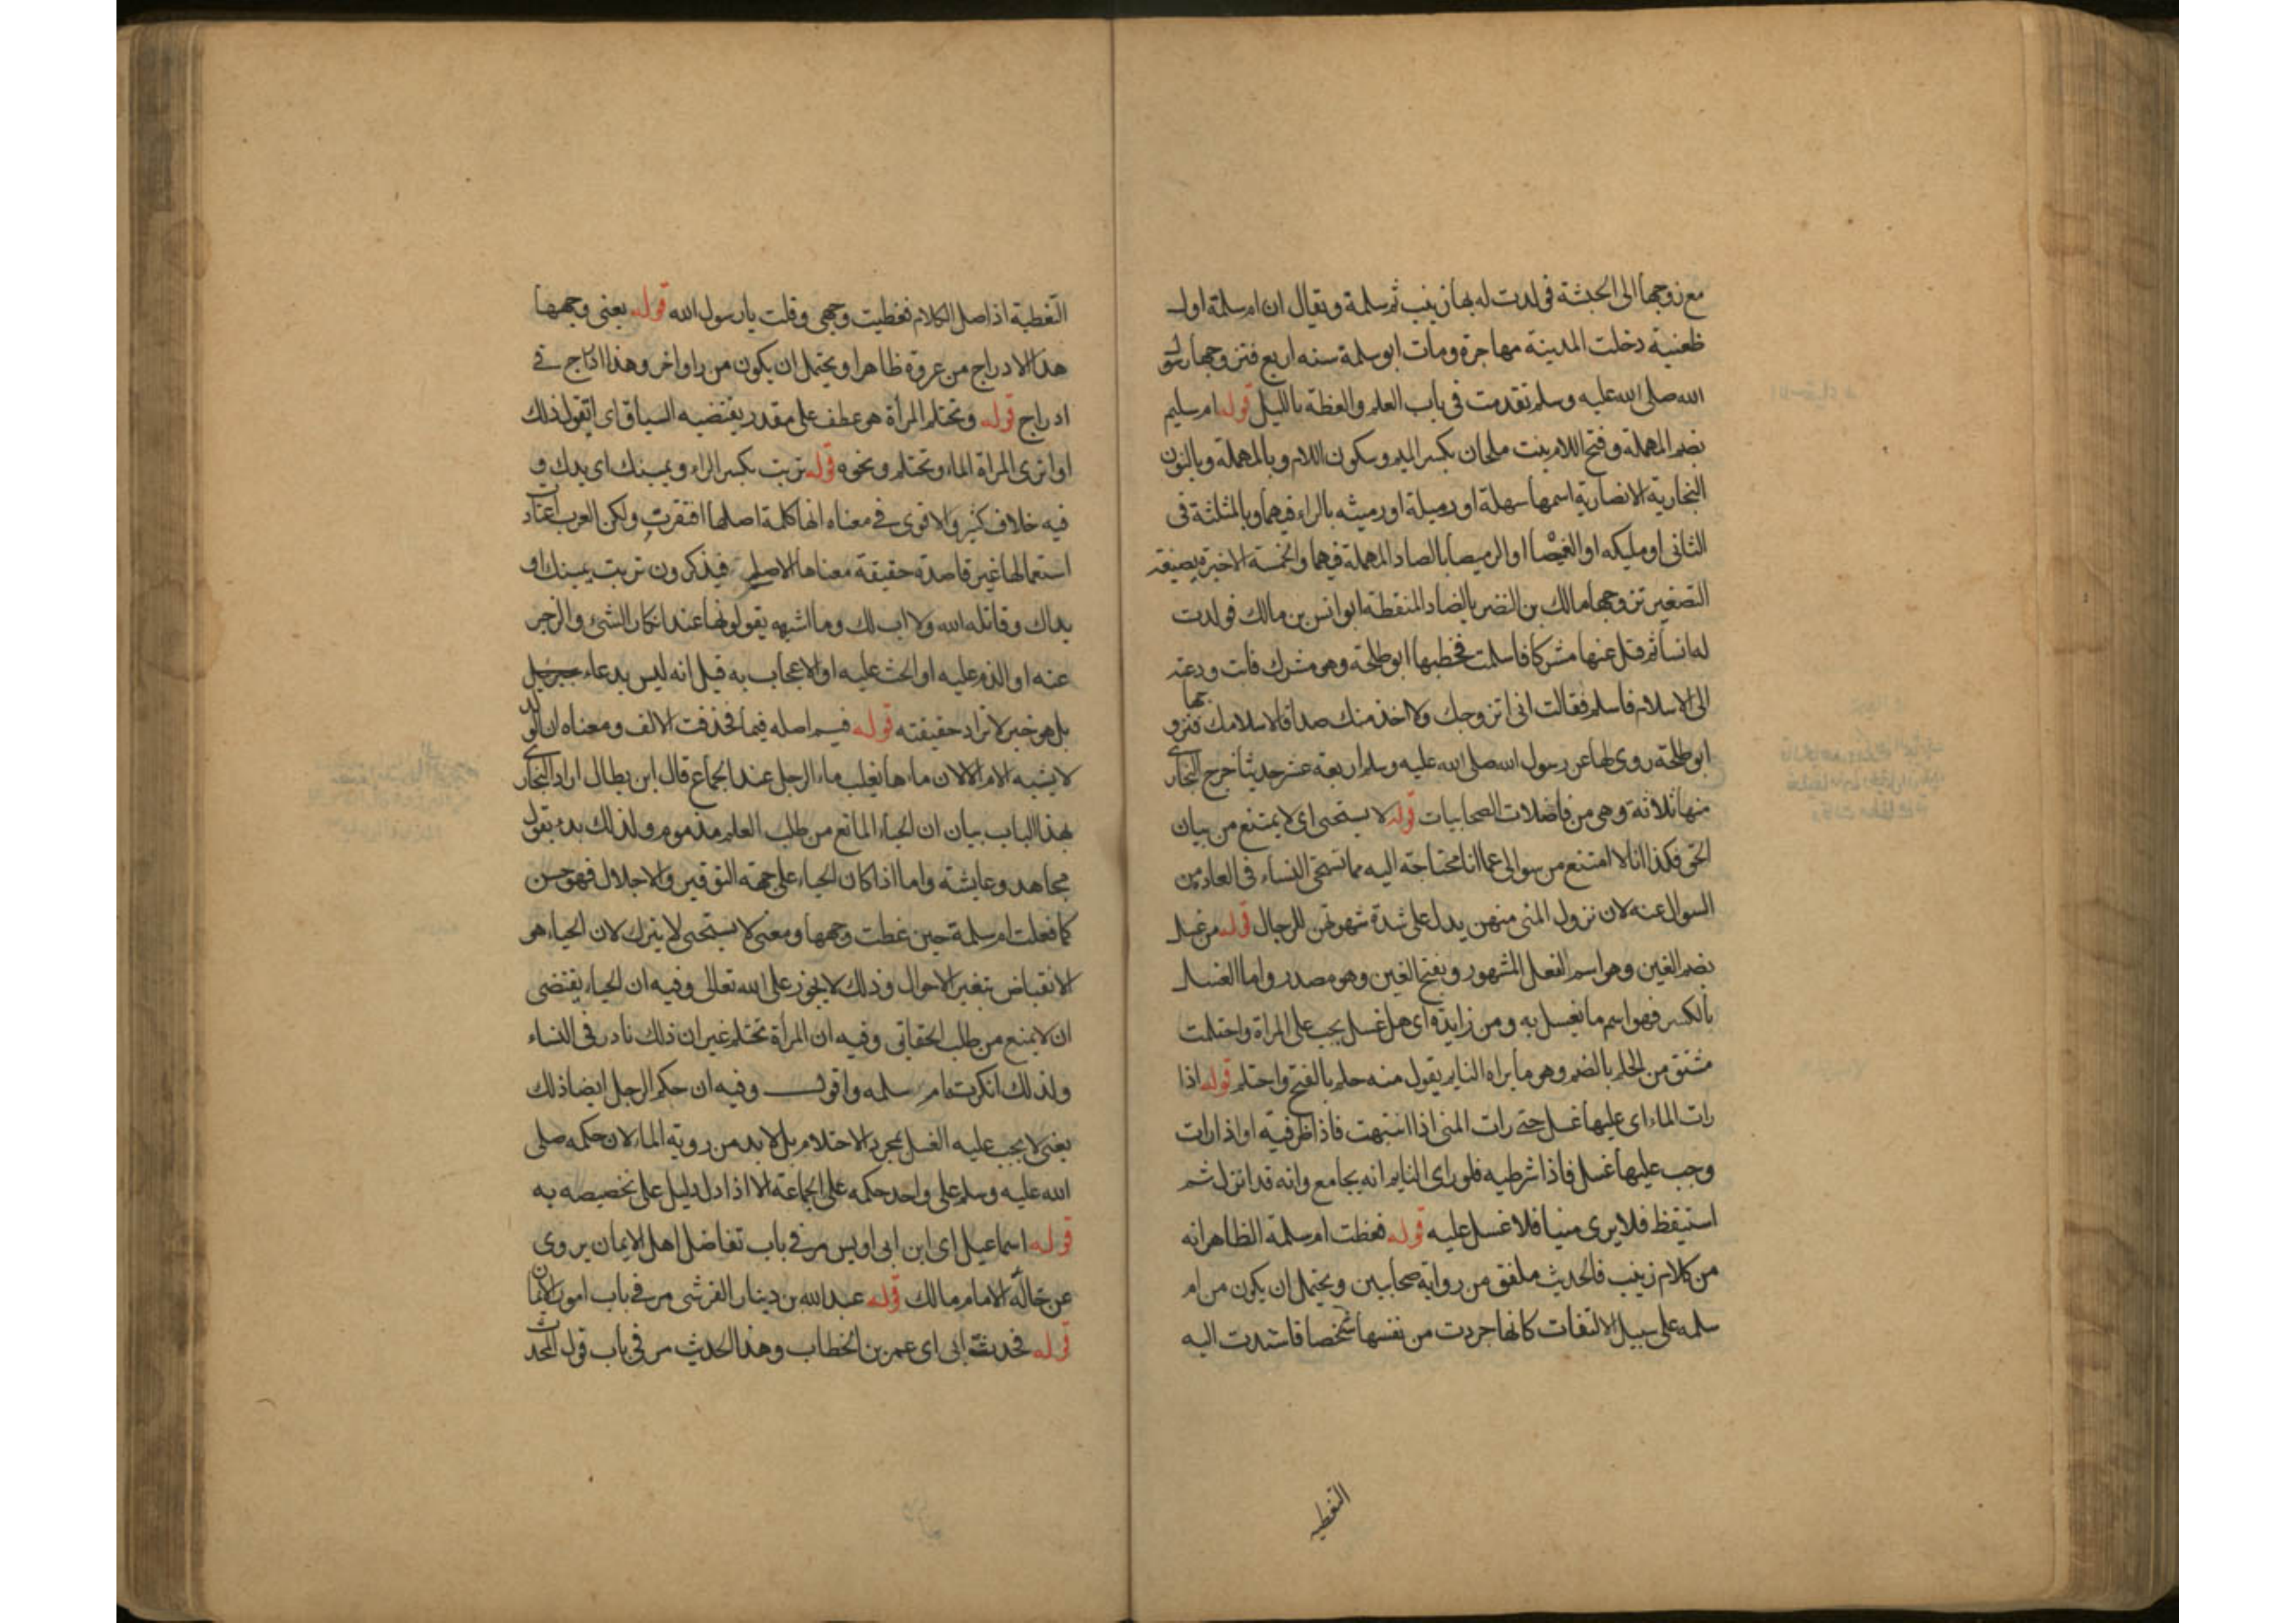 مع زوجها الى الحبشة فولدت له بها زينب ثم سلمة ويقال ان ام سلمة اول
ظعنية دخلت المدينة مهاجرة ومات ابو سلمة سنه اربع فتزوجها رسول
الله صلى الله عليه وسلم تقدمت فى باب العلم والعظة بالليل قوله ام سليم
بضم المهملة وفتح اللام بنت ملحان بكسر الميم وسكون اللام وبالمهملة وبالنون
النجارية الانصارية اسمها سهلة او رميلة او رميثه بالراء فيهما وبالمثلثة فى
الثانى او مليكه او الغميصا او الرميصا بالصاد المهملة فيهما والخمسة الاخيرة بصيغة
التصغير تزوجها مالك بن النضر بالضاد المنقطة ابو انس بن مالك فولدت
له انسا ثم قتل عنها مشركا فاسلمت فخطبها ابو طلحة وهو مشرك فابت ودعته
الى الاسلام فاسلم فقالت انى اتزوجك ولا اخذ منك صداقا لاسلامك فتزوجها
ابو طلحة روى لها عن رسول الله صلى الله عليه وسلم اربعة عشر حديثا خرج البخارى
منها ثلاثة وهى من فاضلات الصحابيات قوله لا يستحيى اى لا يمتنع من بيان
الحق فكذا انا لا امتنع من سوالى عما انا محتاجة اليه مما تستحى النساء فى العادة من
السوال عنه لان نزول المنى منهن يدل على شدة شهوتهن للرجال قوله من غسل
بضم الغين وهو اسم الفعل المشهور وبفتح الغين وهو مصدر واما الغسل
بالكسر فهو اسم ما يغسل به ومن زايدة اى هل غسل يجب على المراة واحتلمت
مشتق من الحلم بالضم وهو ما يراه النايم يقول منه حلم بالفتح واحتلم قوله اذا
رات الماء اى عليها غسل حتى رات المنى اذا انتبهت فاذا ظرفية او اذا رات
وجب عليها غسل فاذا شرطيه فلو راى النايم انه يجامع وانه قد انزل ثم
استيقظ فلا يرى منيا فلا غسل عليه قوله فغطت ام سلمة الظاهر انه
من كلام زينب فالحديث ملفق من رواية صحابيين ويحتمل ان يكون من ام
سلمه على سبيل الالتفات كانها جردت من نفسها شخصا فاسندت اليه
التغطيه
التغطية اذ اصل الكلام فغطيت وجهى وقلت يا رسول الله قوله يعنى وجهها
هذا الادراج من عروة ظاهرا ويحتمل ان يكون من راو اخر وهذا ادراج فى
ادراج قوله وتحتلم المرأة هو عطف على مقدر يقتضيه السياق اى اتقول ذلك
او اترى المراة الماء وتحتلم ونحوه قوله تربت بكسر الراء ويمينك اى يدك و
فيه خلاف كثير والاقوى فى معناه انها كلمة اصلها افتقرت ولكن العرب اعتادت
استعمالها غير قاصدة حقيقة معناها الاصلى فيذكرون تربت يمينك او
يداك وقاتله الله ولا اب لك وما اشبهه يقولونها عند انكار الشئ والزجر
عنه او الذم عليه او الحث عليه او الاعجاب به قيل انه ليس بدعاء
بل هو خبر لا تراد حقيقته قوله فبم اصله فبما فحذفت الالف ومعناه ان الولد
لا يشبه الام الا لان ماءها يغلب ماء الرجل عند الجماع قال ابن بطال اراد البخارى
بهذا الباب بيان ان الحياء المانع من طلب العلم مذموم ولذلك بدء بقول
مجاهد وعايشة واما اذا كان الحياء على جهة التوقير والاجلال فهو حسن
كما فعلت ام سلمة حين غطت وجهها ومعنى لا يستحيى لا يترك لان الحياء هو
الانقباض بتغير الاحوال وذلك لا يجوز على الله تعالى وفيه ان الحياء يقتضى
ان لا يمنع من طلب الحقائق وفيه ان المرأة تحتلم غير ان ذلك نادر فى النساء
ولذلك انكرت ام سلمه واقول وفيه ان حكم الرجل ايضا ذلك
يعنى لا يجب عليه الغسل بمجرد الاحتلام بل لا بد من روية الماء لان حكمه صلى
الله عليه وسلم على واحد حكمه على الجماعة الا اذا دل دليل على تخصيصه به
قوله اسماعيل اى ابن ابى اويس مر فى باب تفاضل اهل الايمان يروى
عن خاله الامام مالك قوله عبد الله بن دينار القرشى مر فى باب امور الايمان
قوله فحدثت ابى اى عمر بن الخطاب وهذا الحديث مر فى باب قول المحدث